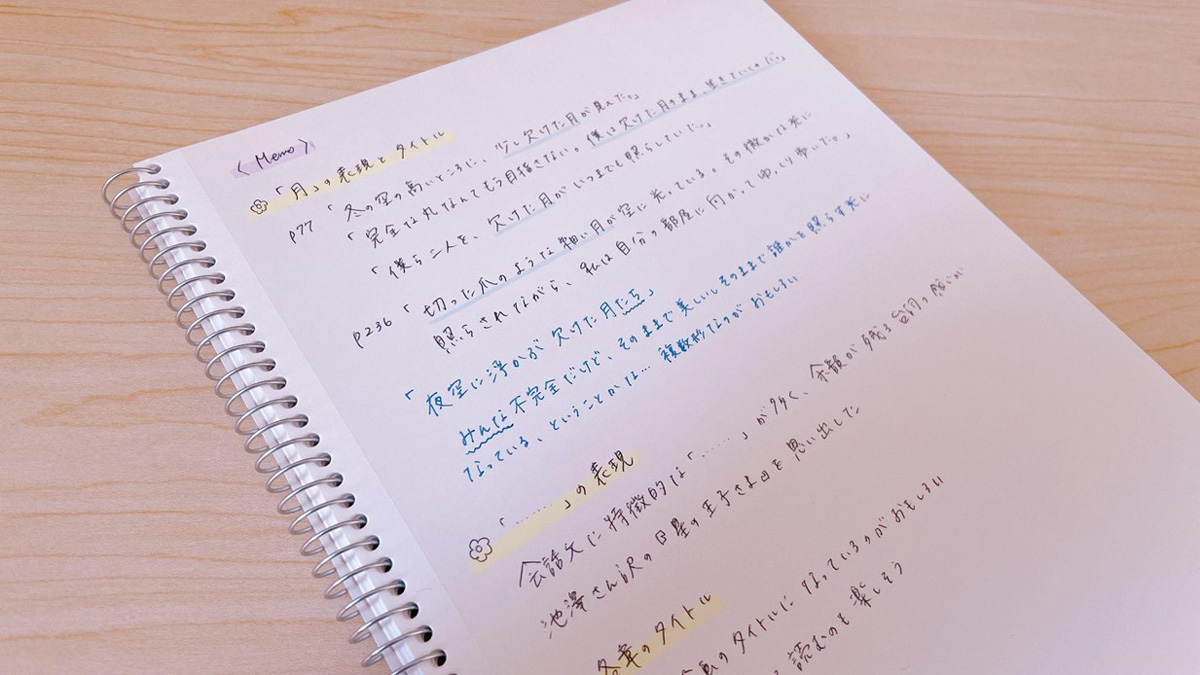 〈 Memo 〉
「月」の表現とタイトル
p77 「冬の空の高いところに、少し欠けた月が見えた。」
「完全な丸なんてもう目指さない。僕は欠けた月のまま、生きていくのだ。」
「僕ら二人を、欠けた月がいつまでも照らしていた。」
p236 「切った爪のような細い月が空に光っている。その微かな光に
照らされながら、私は自分の部屋に向かってゆっくり歩いた。」
「夜空に浮かぶ欠けた月たち」
みんな不完全だけど、そのままで美しいしそのままで誰かを照らす光に
なっている、ということかな… 複数形なのが おもしろい
「……」の表現
会話文に特徴的な「……」が多く、余韻が残る台詞の感じが
池澤さん訳の星の王子さまを思い出した
各章のタイトル
のタイトルに なっているのがおもしろい
読むのも楽しそう